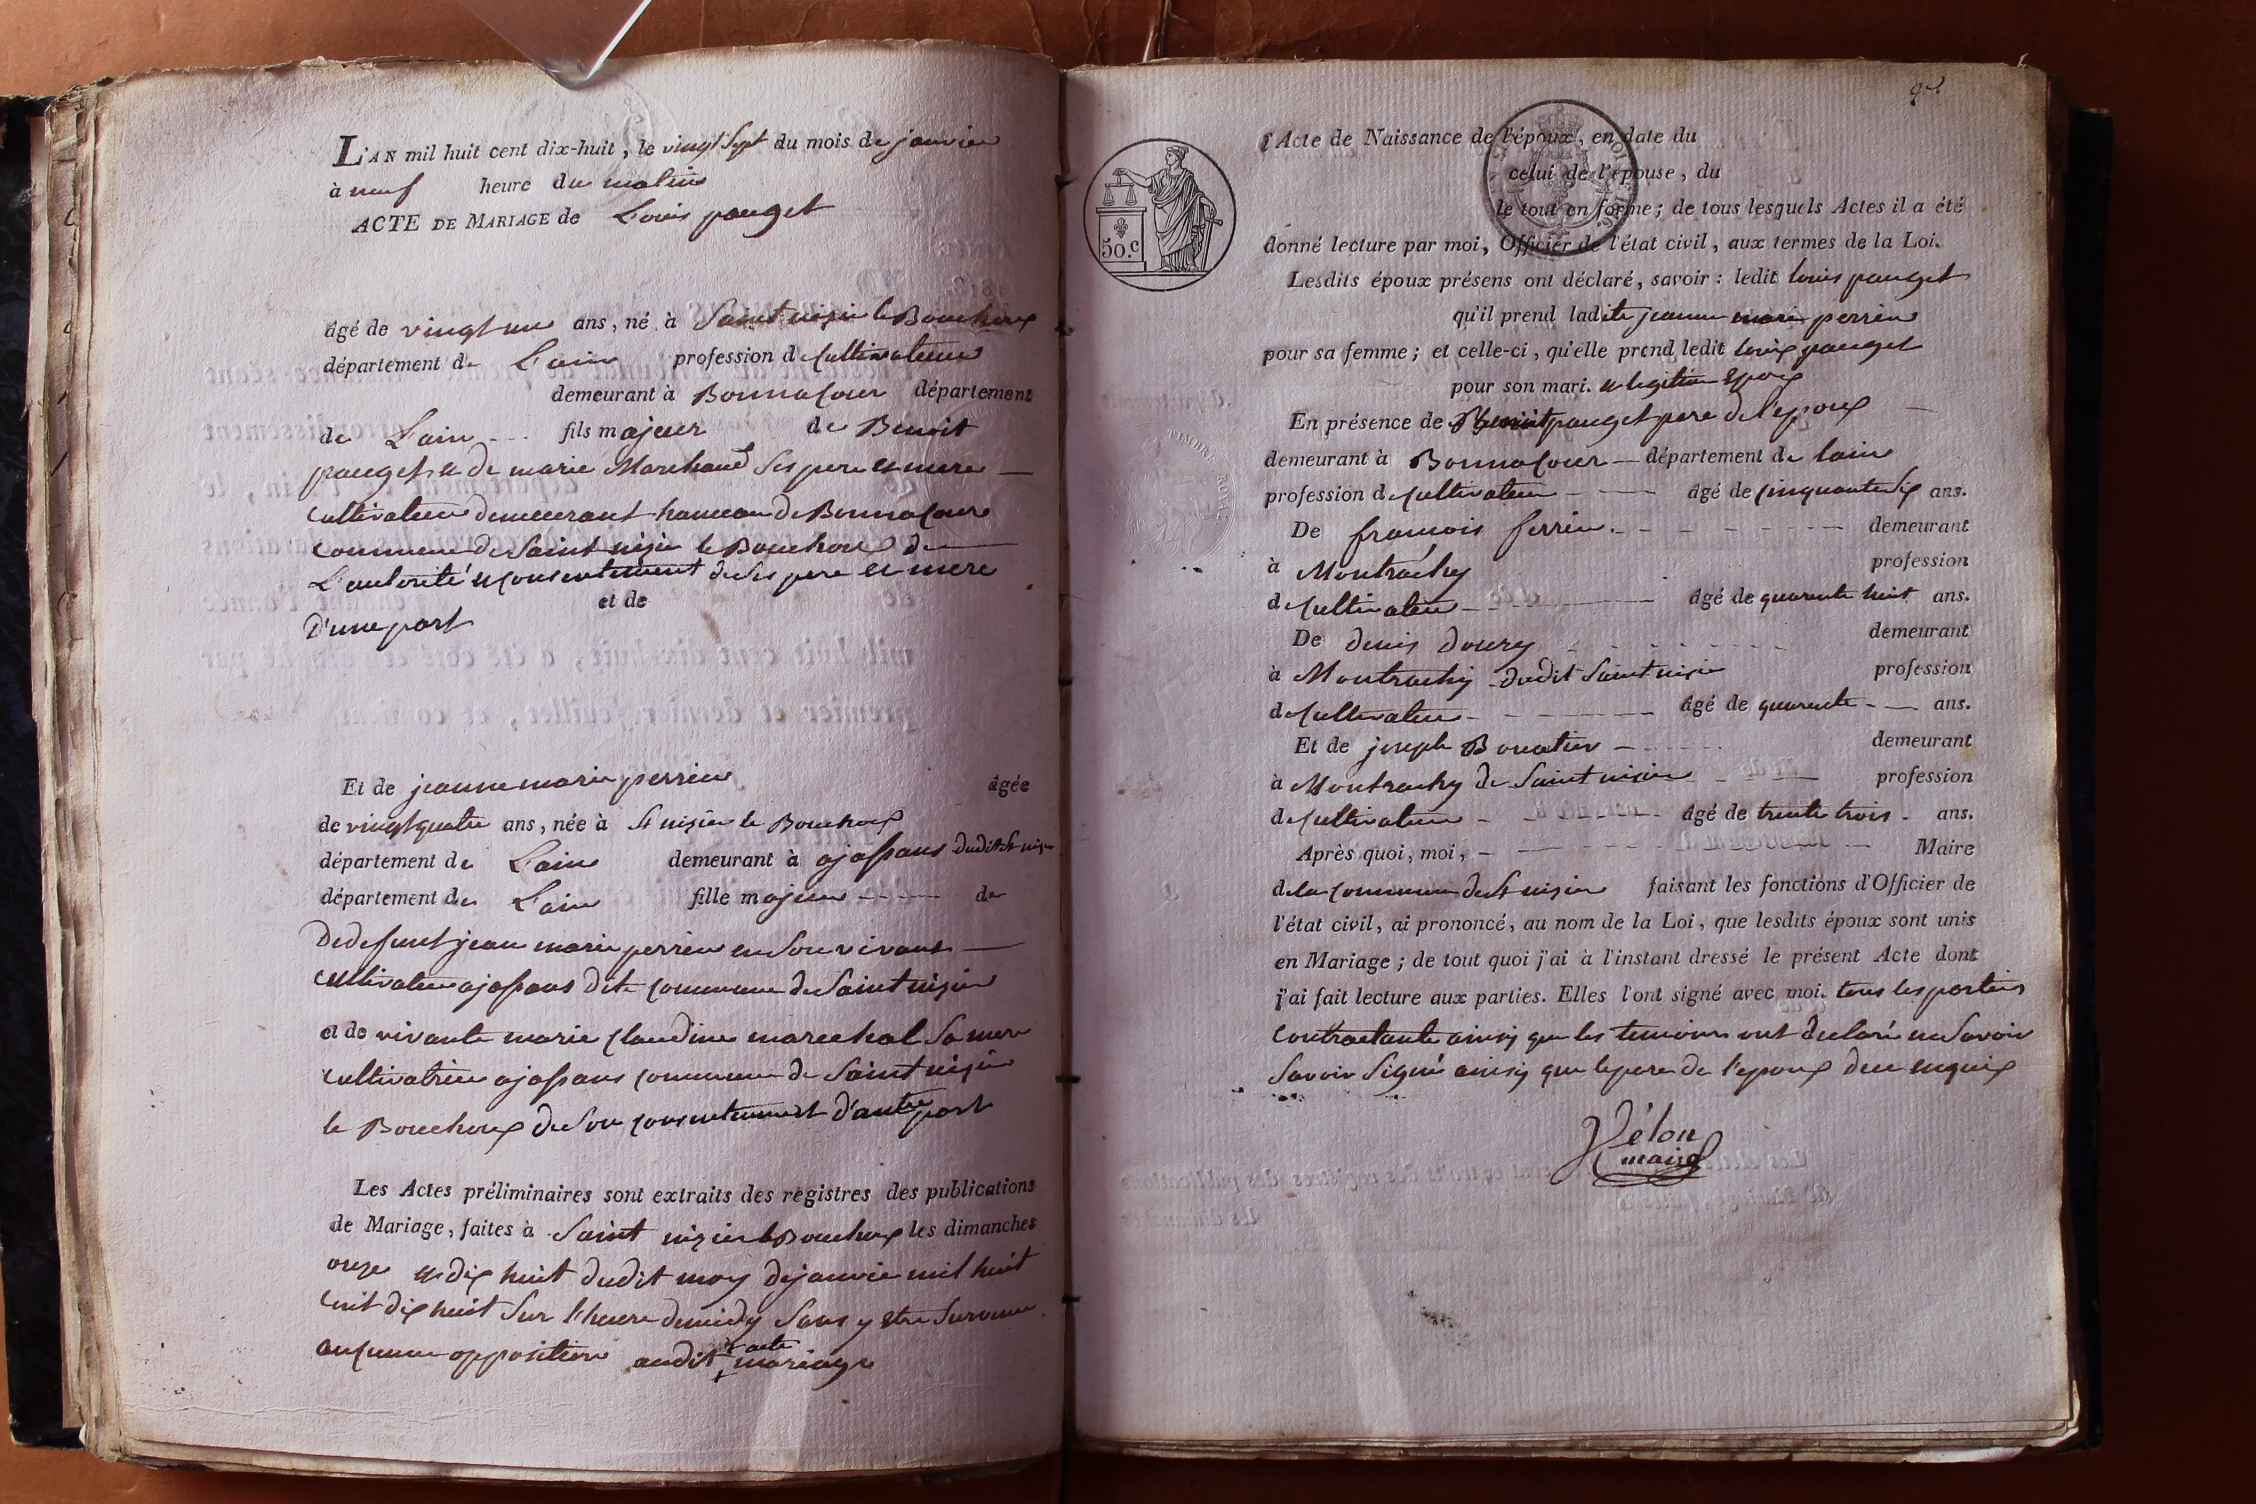 L'AN mil huit cent dix-huit, le vingt Sept du mois de janvier
à neuf heure du matin
ACTE DE MARIAGE de Louis pauget
âgé de vingt un ans, né à Saint nizier le Bouchoux
département de L'ain profession de Cultivateur
demeurant à Bonnacour département
de L'ain fils majeur de Benoit
pauget et de marie Marchand Ses pere et mere
cultivateur demeurant hameau de Bonnacour
commune de Saint nizier le Bouchoux de
L'autorité et consentement de Ses pere et mere
et de
D'une part
Et de jeanne marie perrin âgée
de vingt quatre ans, née à St nizier le Bouchoux
département de L'ain demeurant à ajassans dudit St nizier
département de L'ain fille majeure de
De defunt jean marie perrin en Son vivant
cultivateur ajassans dite commune de Saint nizier
et de vivante marie Claudine marechal Sa mere
cultivatrice ajassans commune de Saint nizier
le Bouchoux de Son consentement d'autre part
Les Actes préliminaires sont extraits des registres des publications
de Mariage, faites à Saint nizier le Bouchoux les dimanches
onze et dix huit dudit moy de janvier mil huit
cent dix huit Sur l'heure de midy Sans y etre Survenu
aucune opposition audit acte mariage
l'Acte de Naissance de l'époux, en date du
celui de l'épouse, du
le tout en forme; de tous lesquels Actes il a été
donné lecture par moi, Officier de l'état civil, aux termes de la Loi.
50.c
Lesdits époux présens ont déclaré, savoir: ledit louis pauget
qu'il prend ladite jeanne marie perrin
pour sa femme; et celle-ci, qu'elle prend ledit louis pauget
pour son mari. et legitime Epoux
En présence de Benoit pauget pere de l'epoux
demeurant à Bonnacour département de lain
profession de Cultivateur âgé de cinquante Six ans.
De francois perrin demeurant
à Montrachy profession
de Cultivateur âgé de quarente huit ans.
De denis doury demeurant
à Montrachy dudit Saint nizier profession
de Cultivateur âgé de quarente ans.
Et de joseph Bouatier demeurant
à Montrachy de Saint nizier profession
de Cultivateur âgé de trente trois ans.
Après quoi, moi, Maire
de la commune de St nizier faisant les fonctions d'Officier de
l'état civil, ai prononcé, au nom de la Loi, que lesdits époux sont unis
en Mariage; de tout quoi j'ai à l'instant dressé le présent Acte dont
j'ai fait lecture aux parties. Elles l'ont signé avec moi. tous les parties
contractante ainsy que les temoins ont declaré ne Savoir
Savoir Signé ainsy que le pere de l'epoux de ce enquis
Vélon
maire